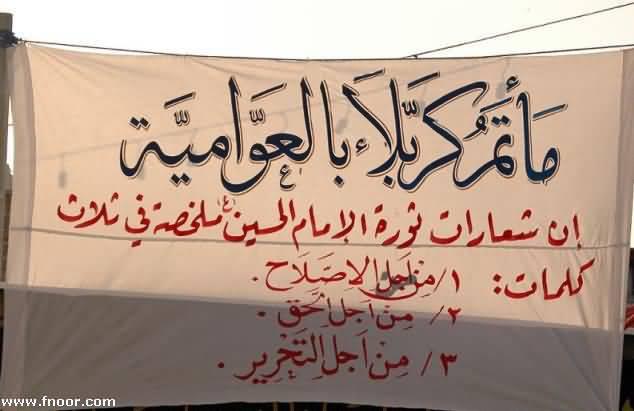 مَأتَمُ كَرْبَلاَءِ بِالعَوَّامِيَّة
إن شعارات ثورة الإمام الحسين (ع) ملخصة في ثلاث
كلمات: ١/ مِنْ أجل الإصْلَاح .
٢/ مِنْ أَجلِ الحَق .
٣/ مِنْ أجلِ التَحْرِير .
www.fnoor.com